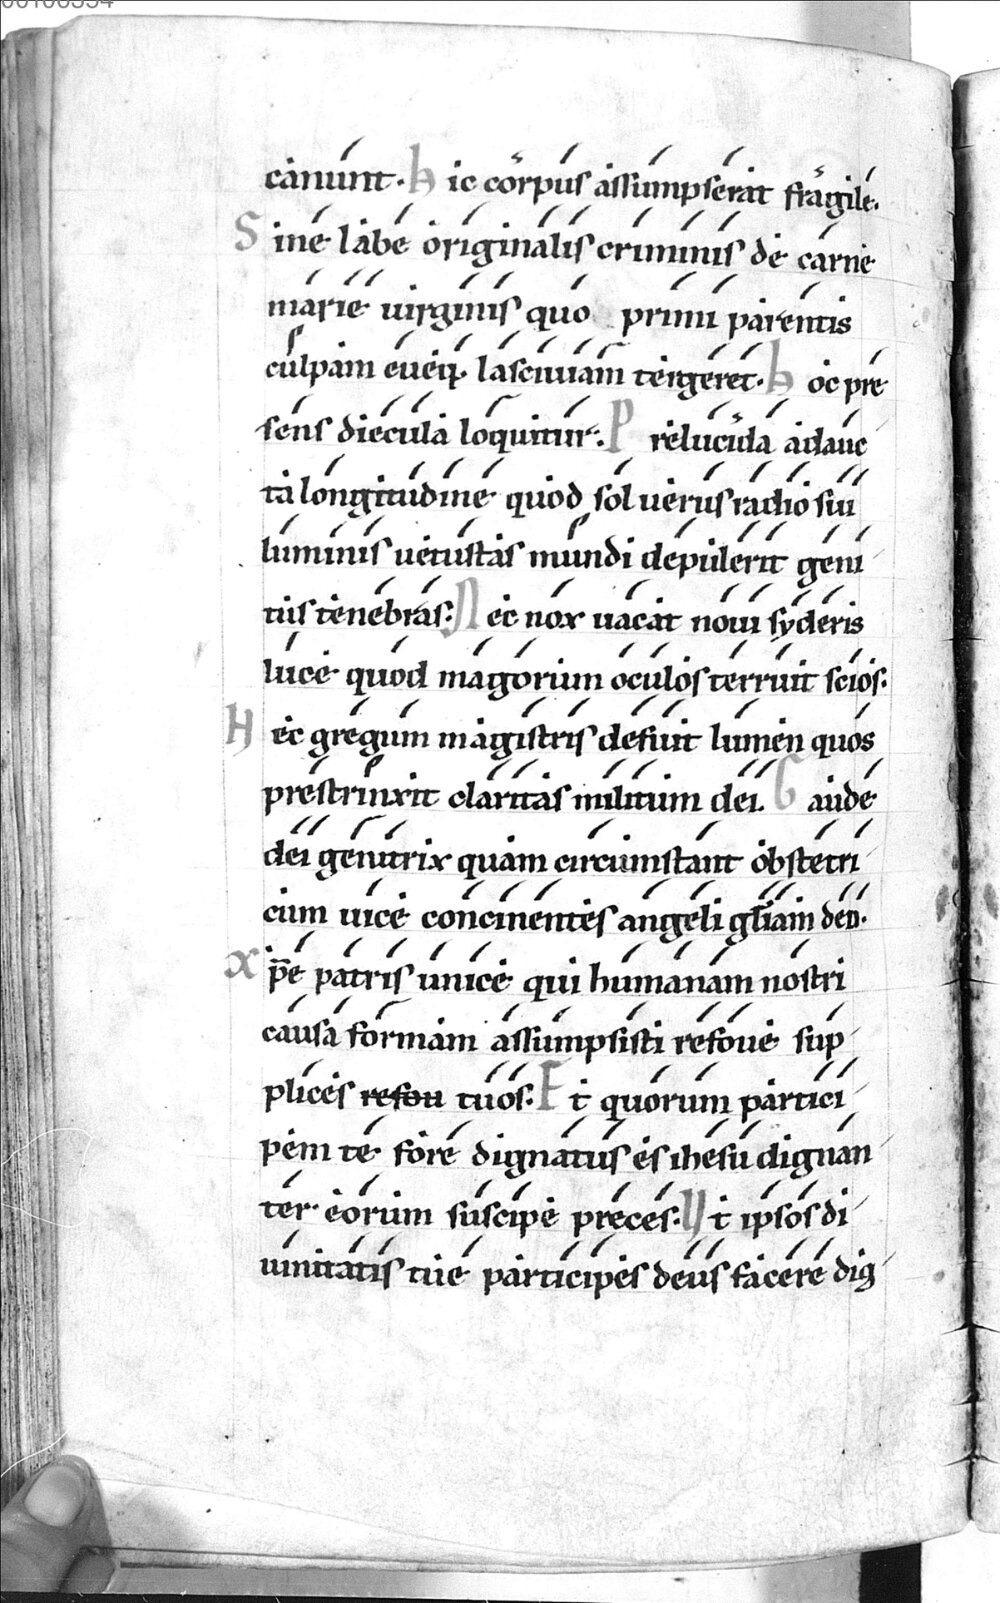 canunt. hic corpus assumpserat fragile.
Sine labe originalis criminis de carne
marie uirginis quo primi parentis
culpam eueq; lasciuiam tergeret. hoc pre
sens diecula loquitur. Prelucida adauc
ta longitudine quod sol uerus radio sui
luminis uetustas mundi depulerit geni
tus tenebras. Nec nox uacat noui syderis
luce quod magorum oculos terruit scios.
Hec gregum magistris defuit lumen quos
prestrinxit claritas militum dei. Gaude
dei genitrix quam circumstant obstetri
cum uice concinentes angeli gl̅iam deo.
xp̅e patris unice qui humanam nostri
causa formam assumpsisti refoue sup
plices refou tuos. Et quorum partici
pem te fore dignatus es ihesu dignan
ter eorum suscipe preces. Ut ipsos di
uinitatis tue participes deus facere dig